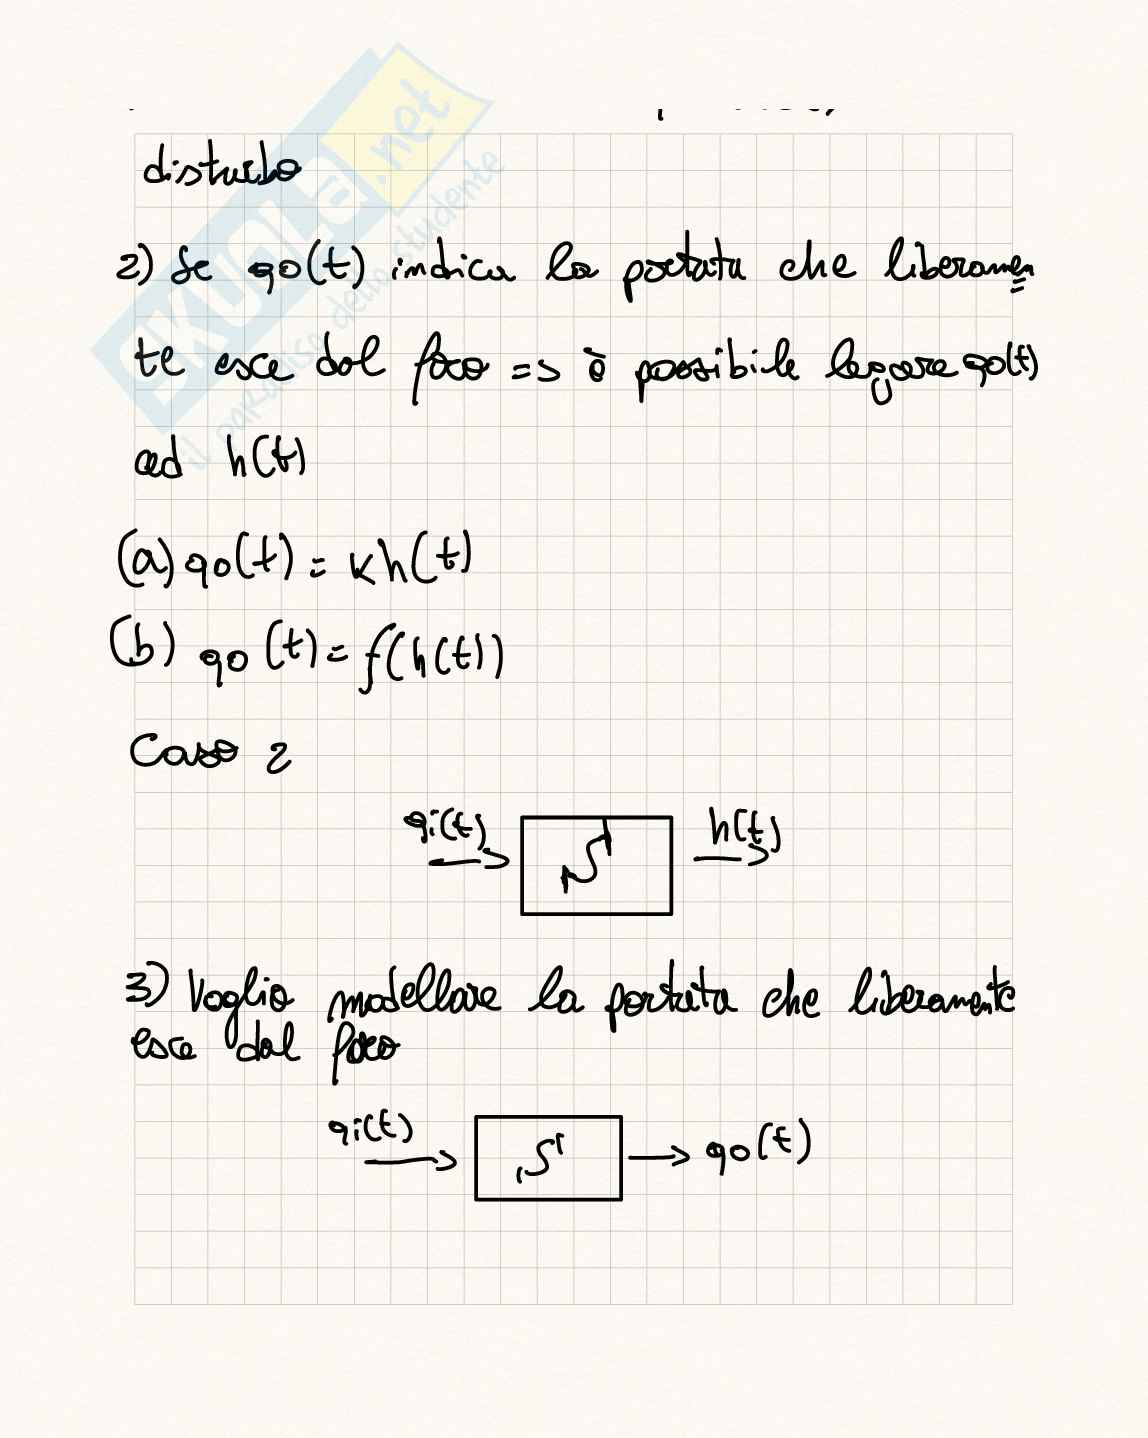 disturbo
2) Se qo(t) indica la portata che liberamen
te esce dal foro => è possibile legare qo(t)
ad h(t)
(a) qo(t) = Kh(t)
(b) qo(t) = f(h(t))
Caso 2
qi(t) S h(t)
3) Voglio modellare la portata che liberamente
esce dal foro
qi(t) S qo(t)
SKUOLA.net
il paradiso dello studente